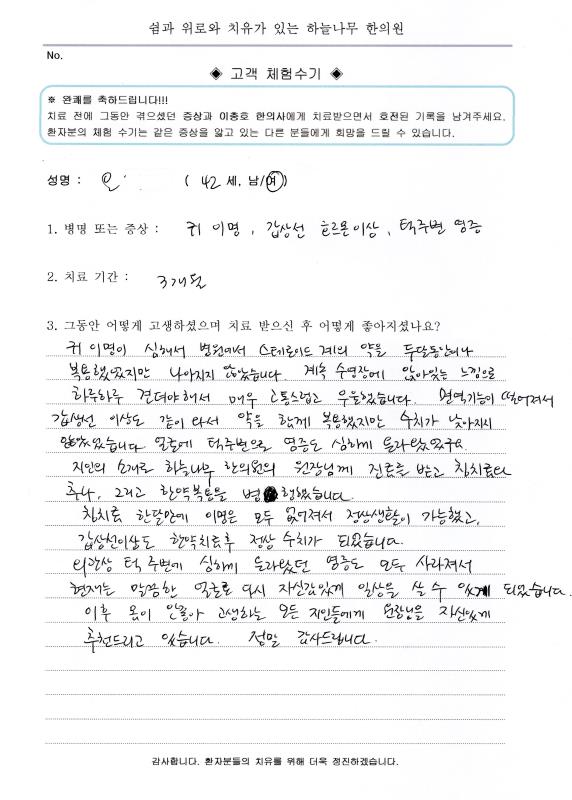 쉼과 위로와 치유가 있는 하늘나무 한의원
No.
◈ 고객 체험수기 ◈
※ 완쾌를 축하드립니다!!!
치료 전에 그동안 겪으셨던 증상과 이충호 한의사에게 치료받으면서 호전된 기록을 남겨주세요.
환자분의 체험 수기는 같은 증상을 앓고 있는 다른 분들에게 희망을 드릴 수 있습니다.
성명 : ( 42 세, 남/여)
1. 병명 또는 증상 : 귀 이명, 갑상선 호르몬이상, 턱주변 염증
2. 치료 기간 : 3개월
3. 그동안 어떻게 고생하셨으며 치료 받으신 후 어떻게 좋아지셨나요?
귀 이명이 심해서 병원에서 스테로이드 계의 약을 두달동안이나
복용했었지만 나아지지 않았습니다. 계속 수영장에 앉아있는 느낌으로
하루하루 견뎌야해서 매우 고통스럽고 우울했었습니다. 면역기능이 떨어져서
갑상선 이상도 같이 와서 약을 함께 복용했지만 수치가 낮아지지
않았었습니다. 얼굴에 턱주변으로 염증도 심하게 올라왔었구요.
지인의 소개로 하늘나무 한의원의 원장님께 진료를 받고 침치료와
추나, 그리고 한약복용을 병행했습니다.
침치료 한달만에 이명은 모두 없어져서 정상생활이 가능했고,
갑상선이상도 한약치료후 정상 수치가 되었습니다.
외관상 턱 주변에 심하게 올라왔던 염증도 모두 사라져서
현재는 말끔한 얼굴로 다시 자신감있게 일상을 살 수 있게 되었습니다.
이후 몸이 안좋아 고생하는 모든 지인들에게 원장님을 자신있게
추천드리고 있습니다. 정말 감사드립니다.
감사합니다. 환자분들의 치유를 위해 더욱 정진하겠습니다.